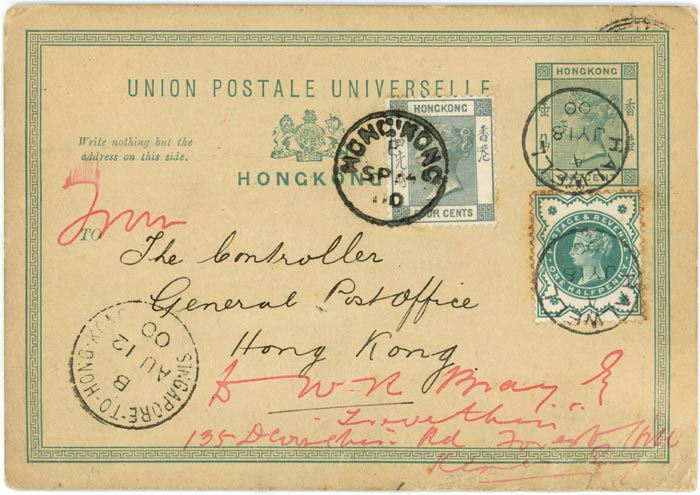 UNION POSTALE UNIVERSELLE
Write nothing but the
address on this side.
HONGKONG
TO
HONGKONG
香港
FOUR CENTS
HONG KONG
B
SP
HONGKONG
香港
壹
CENT
JY 18
00
A
POSTAGE & REVENUE
ONE HALFPENNY
The Controller
General Post Office
Hong Kong
SINGAPORE-TO-HONG-KONG
B
AU 12
00
W. R. Bray
135 Rd Forest Hill